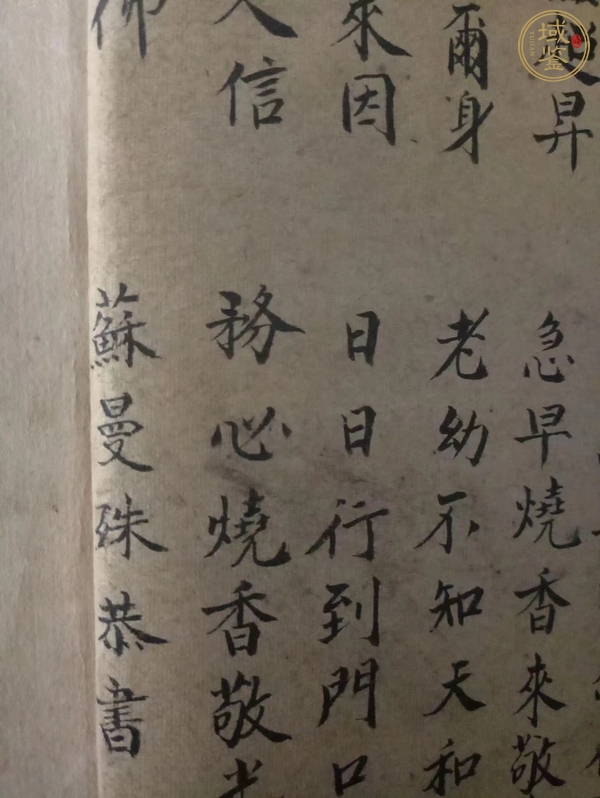 昇 急早燒香來敬
爾身 老幼不知天和
來因 日日行到門口
信 務必燒香敬
佛 蘇曼殊恭書
域鉴